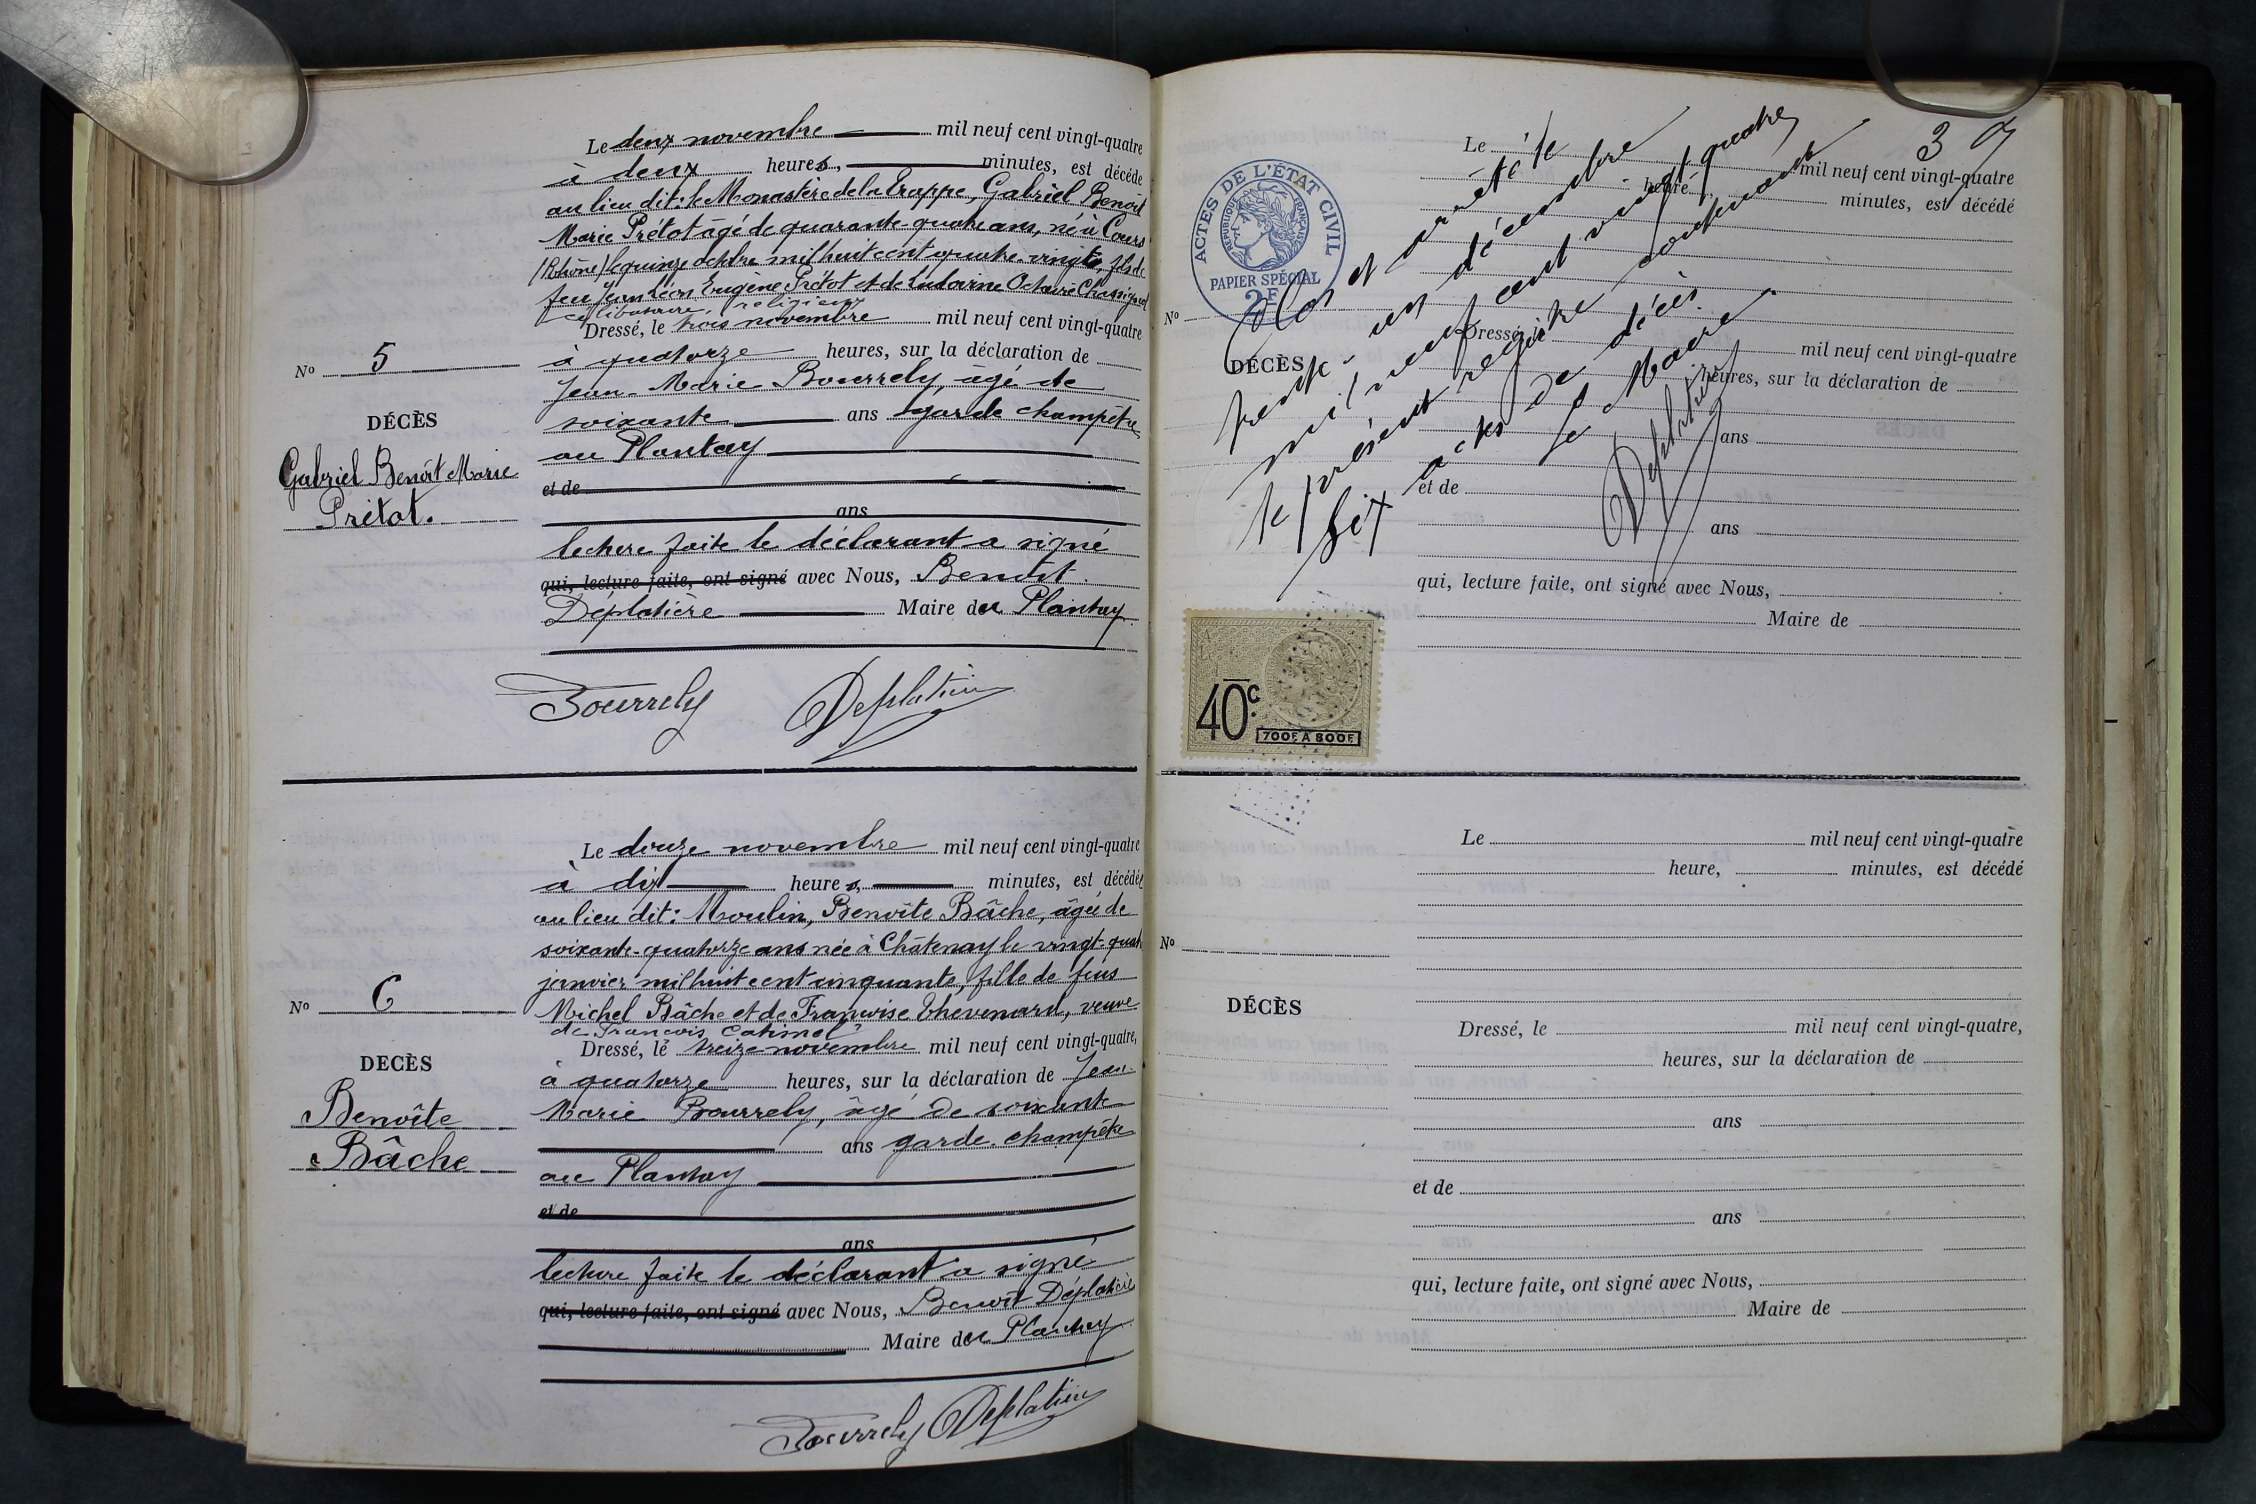 Le deux novembre mil neuf cent vingt-quatre
à deux heures, minutes, est décédé
au lieu dit: le Monastère de la Trappe, Gabriel Benoît
Marie Prétot âgé de quarante-quatre ans, né à Cours
(Rhône) le quinze octobre mil huit cent quatre-vingts, fils de
feu Jean Léon Eugène Prétot et de Ludovine Octavie Chassignol
célibataire, religieux
Dressé, le trois novembre mil neuf cent vingt-quatre
à quatorze heures, sur la déclaration de
Jean-Marie Bourrely, âgé de
soixante ans garde champêtre
au Plantay
et de
ans
lecture faite le déclarant a signé
qui, lecture faite, ont signé avec Nous, Benoît
Déplatière Maire du Plantay
No 5
DÉCÈS
Gabriel Benoît Marie
Prétot.
Bourrely Deplatière
Le douze novembre mil neuf cent vingt-quatre
à dix heures, minutes, est décédée
au lieu dit: Moulin, Benoîte Bâche, âgée de
soixante-quatorze ans née à Châtenay le vingt-quatre
janvier mil huit cent cinquante, fille de feus
Michel Bâche et de Françoise Thevenard, veuve
de François Catimel
Dressé, le treize novembre mil neuf cent vingt-quatre,
à quatorze heures, sur la déclaration de Jean-
Marie Bourrely, âgé de soixante
ans garde-champêtre
au Plantay
et de
ans
lecture faite le déclarant a signé
qui, lecture faite, ont signé avec Nous, Benoît Déplatière
Maire du Plantay
No 6
DÉCÈS
Benoîte
Bâche
Bourrely Deplatière
3
ACTES DE L'ÉTAT CIVIL
RÉPUBLIQUE FRANÇAISE
PAPIER SPÉCIAL
2F
Clos et arrêté le
trente-un décembre
mil neuf cent vingt quatre,
le présent registre contenant
six actes de décès.
Le Maire.
Deplatière
Le mil neuf cent vingt-quatre
heure, minutes, est décédé
No
DÉCÈS
Dressé, le mil neuf cent vingt-quatre
heures, sur la déclaration de
ans
et de
ans
qui, lecture faite, ont signé avec Nous,
Maire de
40c.
700F À 800F
Le mil neuf cent vingt-quatre
heure, minutes, est décédé
No
DÉCÈS
Dressé, le mil neuf cent vingt-quatre,
heures, sur la déclaration de
ans
et de
ans
qui, lecture faite, ont signé avec Nous,
Maire de